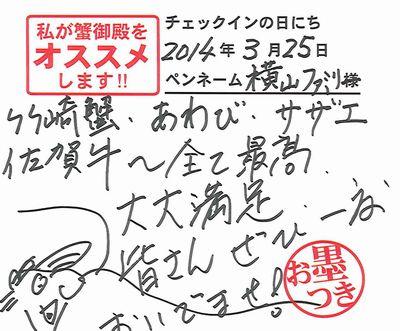 私が蟹御殿を
オススメ
します!!
チェックインの日にち
2014年3月25日
ペンネーム 横山ファミリー様
竹崎蟹・あわび・サザエ
佐賀牛〜全て最高、
大大満足。
皆さん ぜひ 一度
おいでませ!
お墨つき